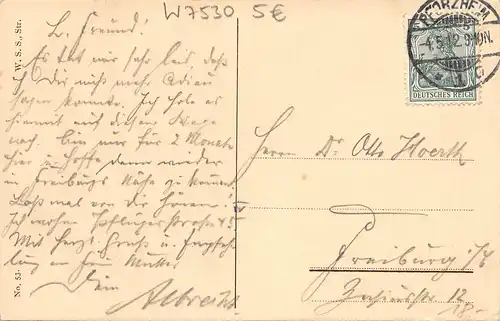 W7530 5€
L. Freund!
Es tut mir sehr leid, daß
ich Dir nicht mehr Adieu
sagen konnte. Ich hole es
hiermit auf diesem Wege
nach. Bin nur für 2 Monate
hier u. hoffe dann wieder
in Freiburgs Nähe zu kommen.
Laß mal von Dir hören.
Ich wohne Pflügerstrasse 45
Mit herzl. Gruß u. Empfeh-
lung an Frau Mutter
Dein
Albrecht.
No. 53- W. S. S., Str.
PFORZHEIM
4.5.12.
DEUTSCHES REICH
Herrn Dr Otto Hoerth
Freiburg i/B
12
18.-